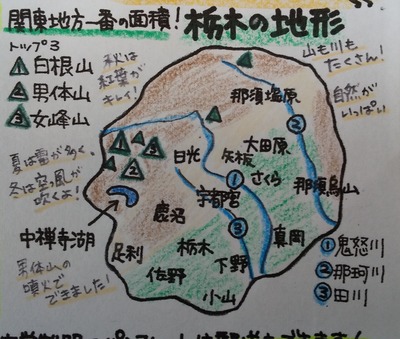 関東地方一番の面積! 栃木の地形
トップ3
1 白根山
2 男体山
3 女峰山
秋は
紅葉が
キレイ!
山も川も
たくさん!
自然が
いっぱい
夏は雷が多く、
冬は空っ風が
吹くよ!
中禅寺湖
男体山の
噴火で
できました!
那須塩原
大田原
矢板
日光
さくら
那須烏山
宇都宮
鹿沼
真岡
栃木
足利
下野
佐野
小山
1
2
3
1
2
3
① 鬼怒川
② 那珂川
③ 田川